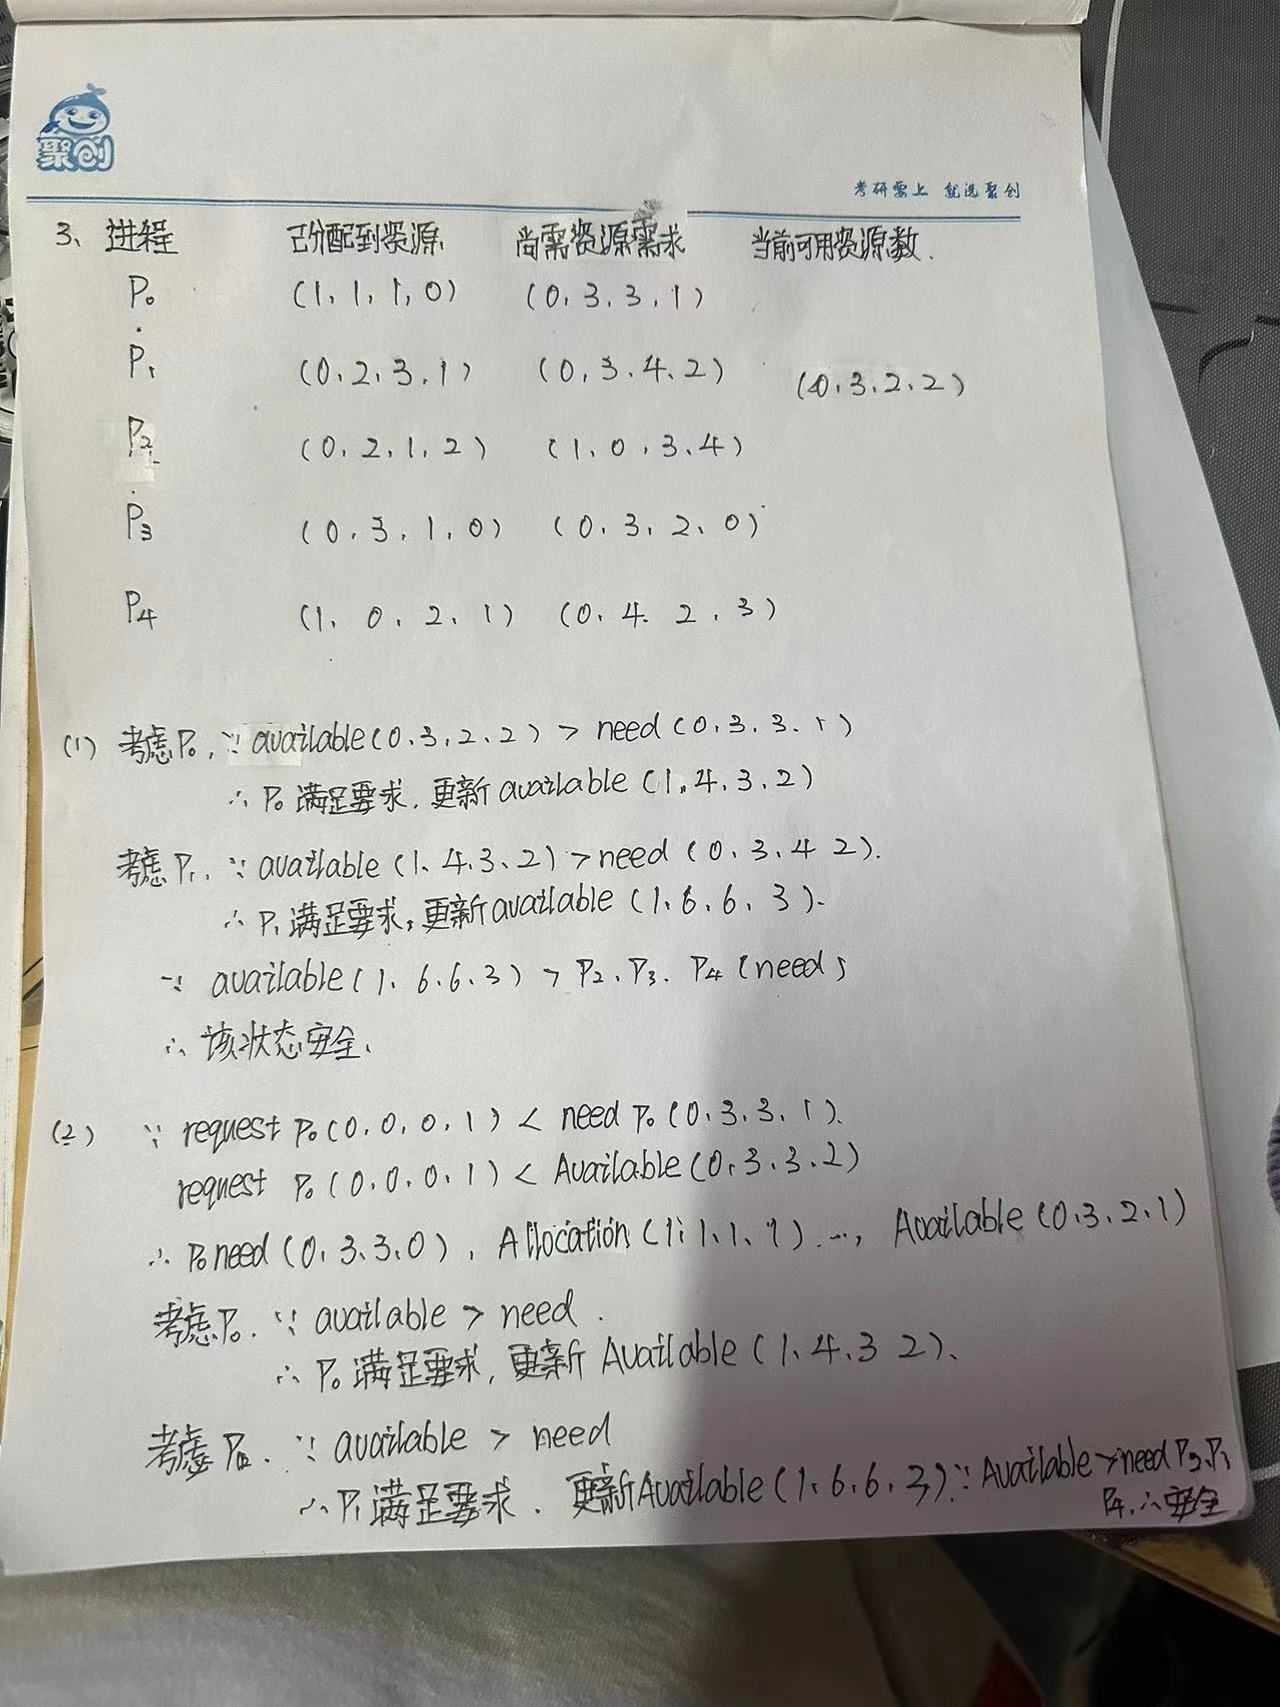 聚创
考研要上 就选聚创
3、进程 已分配到资源 尚需资源需求 当前可用资源数.
P₀ (1,1,1,0) (0.3.3.1)
P₁ (0.2.3.1) (0,3.4.2) (0.3.2.2)
P₂ (0.2,1.2) (1.0.3.4)
P₃ (0.3.1.0) (0.3.2.0)
P₄ (1.0.2.1) (0.4.2.3)
(1) 考虑P₀, ∵ available(0.3.2.2) > need (0.3.3.1)
∴ P₀ 满足要求, 更新 available (1,4,3,2)
考虑P₁, ∵ available (1.4.3.2) > need (0.3.4 2).
∴ P₁ 满足要求, 更新 available (1.6.6.3).
∵ available (1.6.6.3) > P₂.P₃.P₄ (need)
∴ 该状态安全.
(2) ∵ request P₀(0.0.0.1) < need P₀(0.3.3.1).
request P₀(0.0.0.1) < Available(0.3.3.2)
∴ P₀ need (0.3.3.0), Allocation (1.1.1.1) ..., Available (0.3.2.1)
考虑P₀. ∵ available > need.
∴ P₀ 满足要求, 更新 Available (1.4.3 2).
考虑 ∵ available > need
∴ P₁ 满足要求. 更新 Available (1.6.6.3) ∵ Available > need
P₄. ∴ 安全